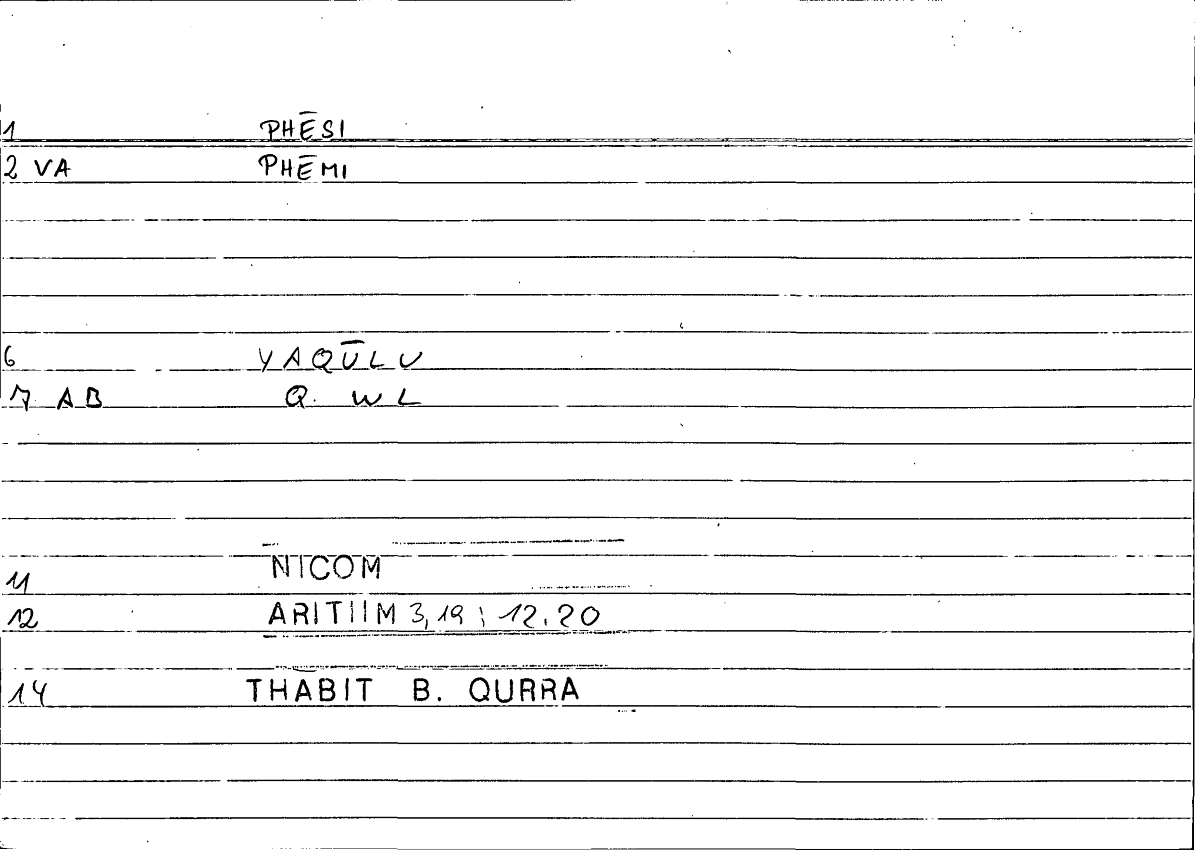 1 PHĒSI
2 VA PHĒMI
6 YAQŪLU
7 AB Q. WL
11 NICOM
12 ARITIIM 3,19 ; 12.20
14 THABIT B. QURRA